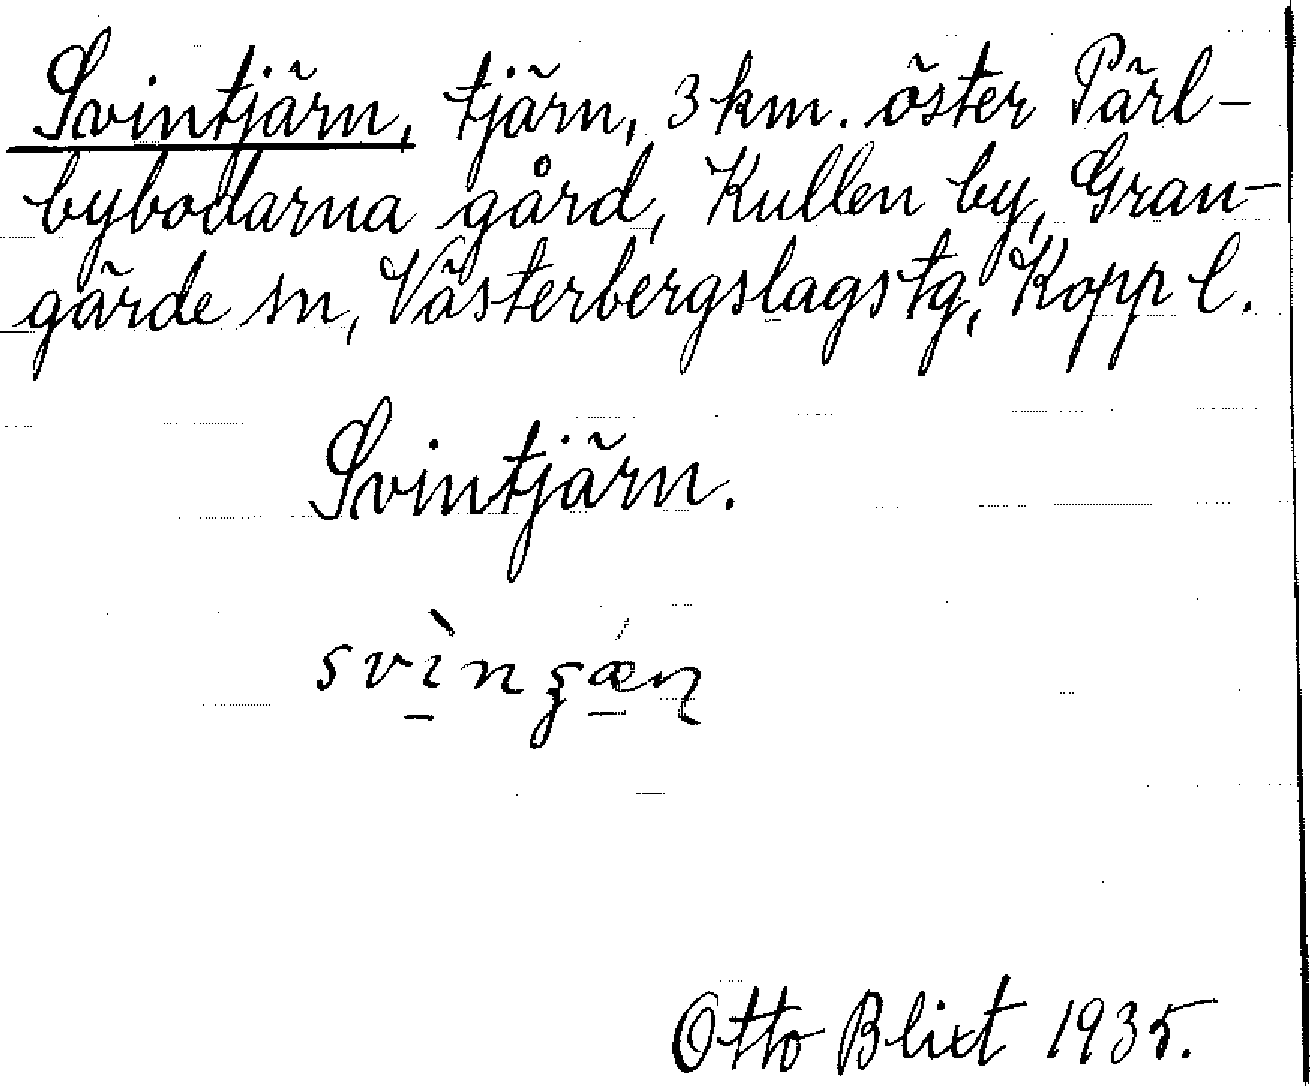 Svintjärn, tjärn, 3 km. öster Pärl-
bybodarna gård, Kullen by, Gran-
gärde sn, Västerbergslags tg, Kopp l.
Svintjärn.
Otto Blixt 1935.